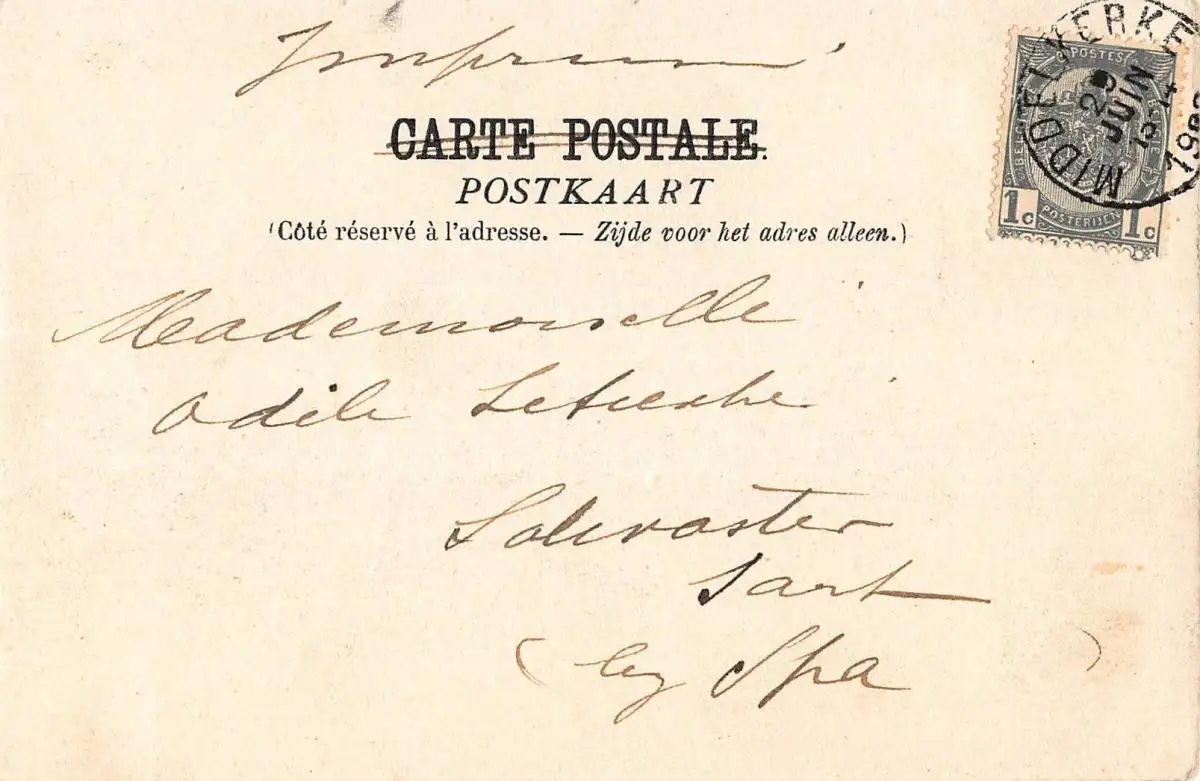 Imprimé
CARTE POSTALE.
POSTKAART
(Côté réservé à l'adresse. — Zijde voor het adres alleen.)
POSTES
BELGIQUE
BELGIË
1c POSTERIJEN 1c
MIDDELKERKE
JUIN
Mademoiselle
Odile
Solwaster
Sart
(by Spa)